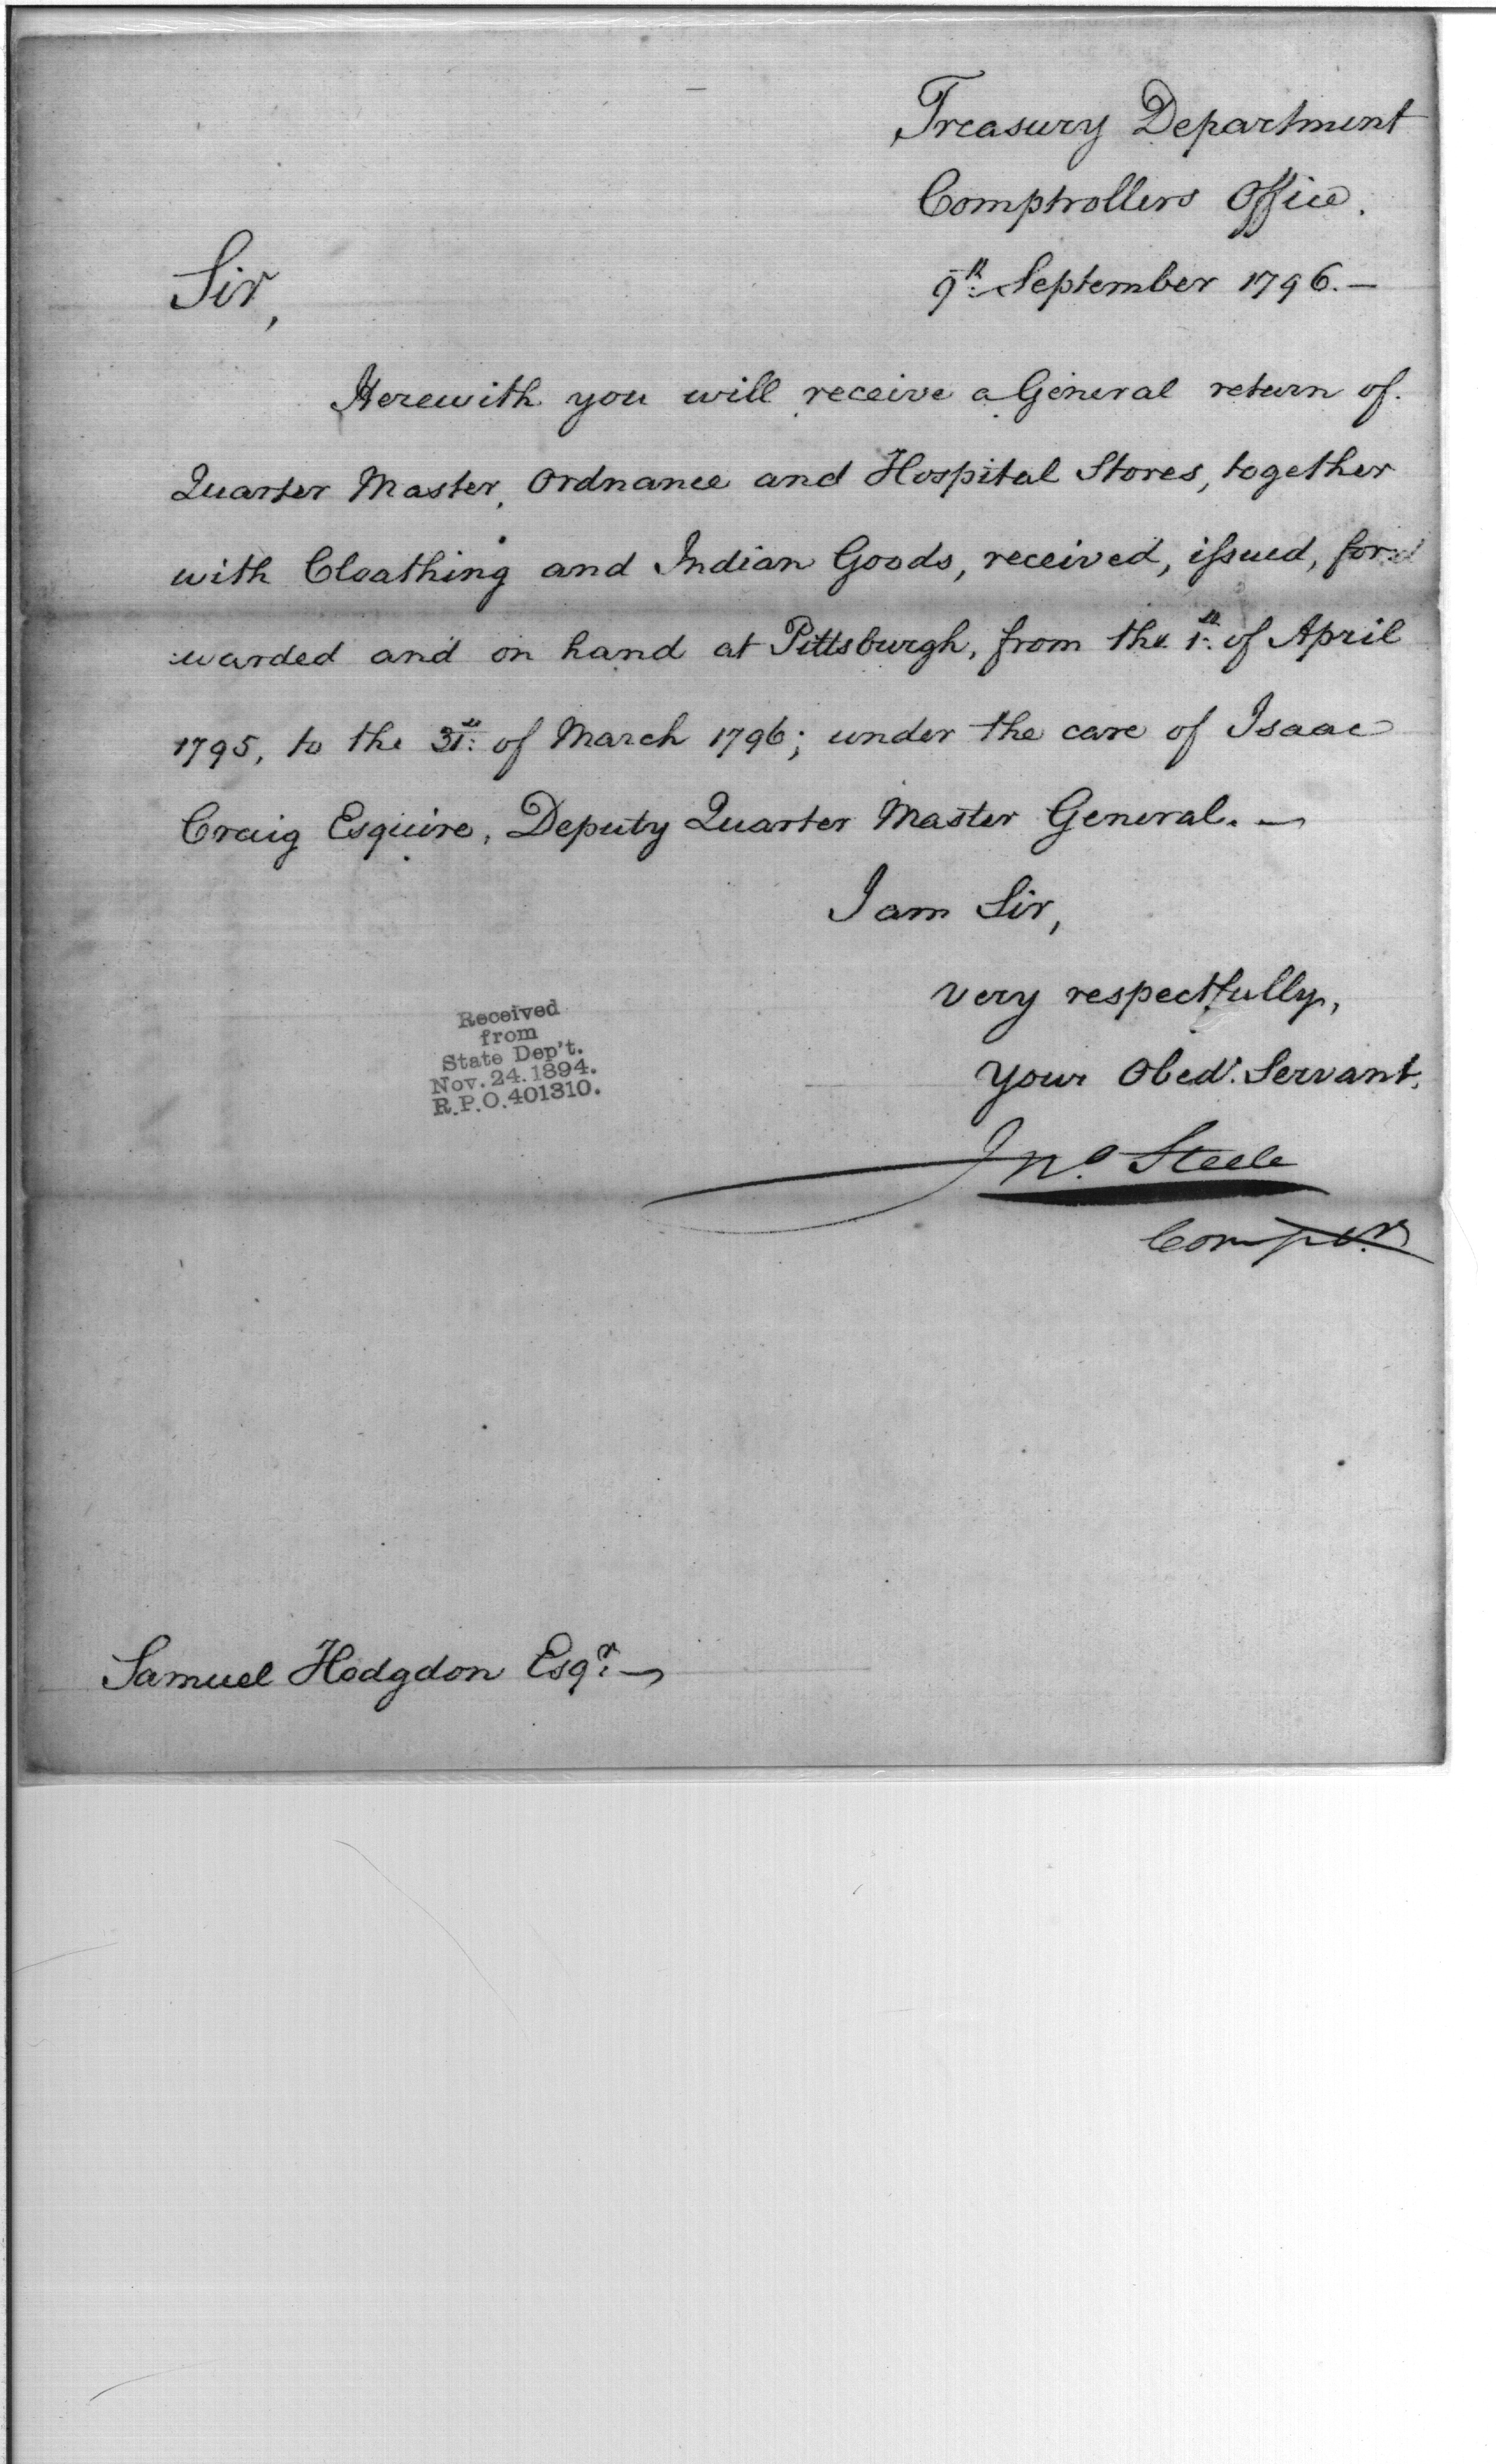 Treasury Department
Comptrollers Office.
9th September 1796.—
Sir,
Herewith you will receive a General return of
Quarter Master, Ordnance and Hospital Stores, together
with Cloathing and Indian Goods, received, issued, for-
-warded and on hand at Pittsburgh, from the 1st of April
1795, to the 31st of March 1796; under the care of Isaac
Craig Esquire, Deputy Quarter Master General.—
I am Sir,
very respectfully,
Your Obedt. Servant.
Jno. Steele
Comptr.
Received
from
State Dep't.
Nov. 24. 1894.
R.P.O. 401310.
Samuel Hodgdon Esqr.—